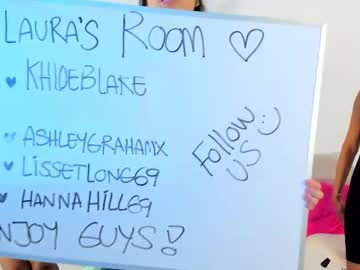 LAURA'S ROOM ♡
♥ KHLOEBLAKE
♥ ASHLEYGRAHAMX
♥ LISSETLONG69
♥ HANNAHILL69
FOLLOW
US :)
ENJOY GUYS!